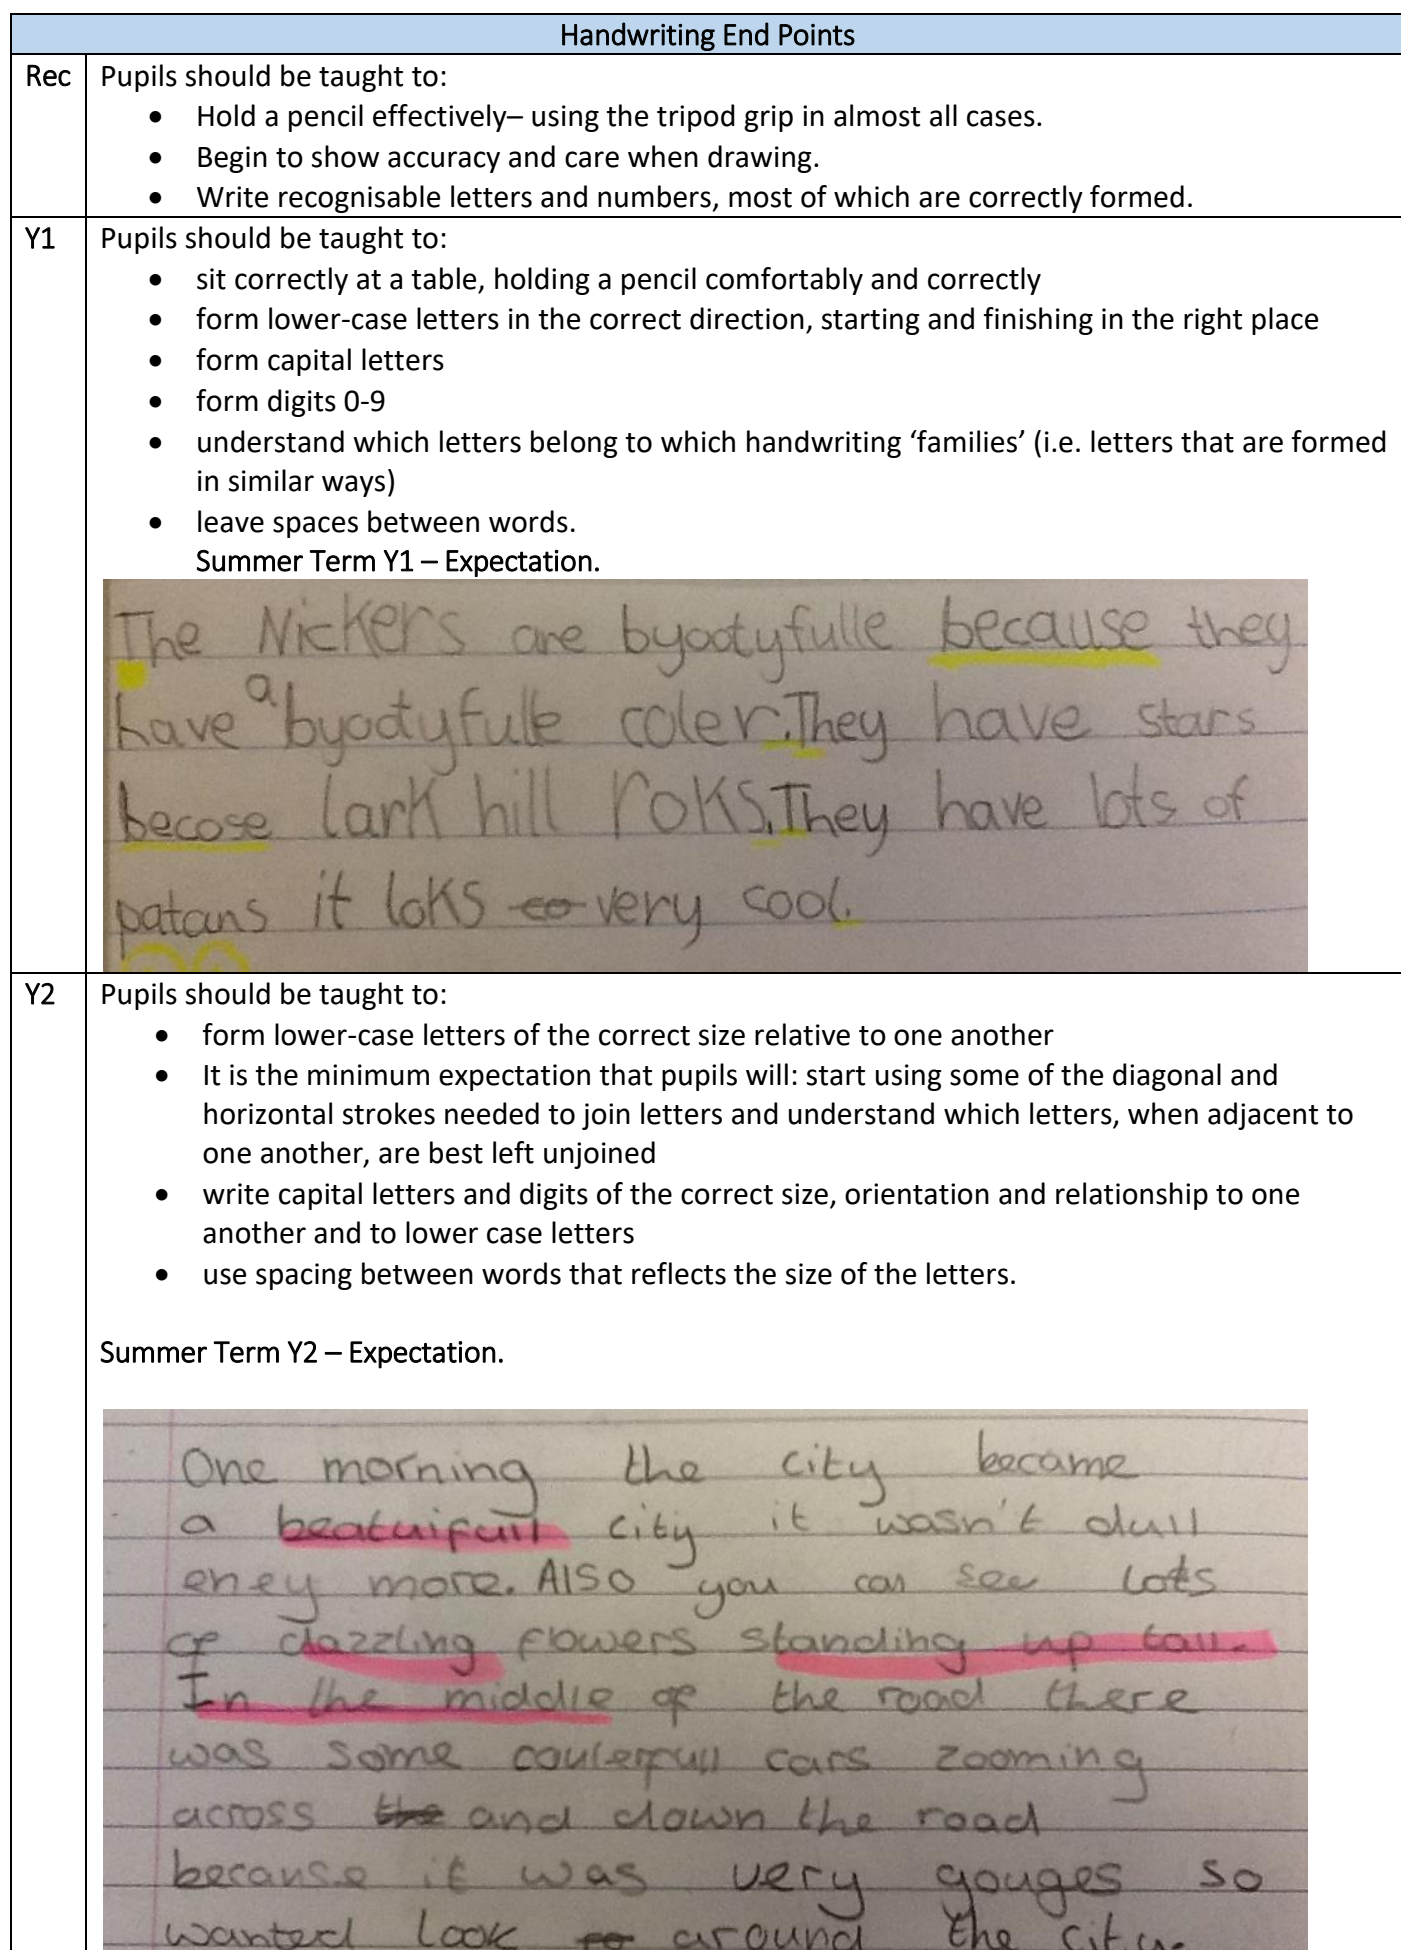 Handwriting End Points
Rec
Pupils should be taught to:
• Hold a pencil effectively– using the tripod grip in almost all cases.
• Begin to show accuracy and care when drawing.
• Write recognisable letters and numbers, most of which are correctly formed.
Y1
Pupils should be taught to:
• sit correctly at a table, holding a pencil comfortably and correctly
• form lower-case letters in the correct direction, starting and finishing in the right place
• form capital letters
• form digits 0-9
• understand which letters belong to which handwriting ‘families’ (i.e. letters that are formed
in similar ways)
• leave spaces between words.
Summer Term Y1 – Expectation.
The Nickers are byootyfulle because they
have a byootyfulle coler. They have stars
becose lark hill roks. They have lots of
patans it loks so very cool.
Y2
Pupils should be taught to:
• form lower-case letters of the correct size relative to one another
• It is the minimum expectation that pupils will: start using some of the diagonal and
horizontal strokes needed to join letters and understand which letters, when adjacent to
one another, are best left unjoined
• write capital letters and digits of the correct size, orientation and relationship to one
another and to lower case letters
• use spacing between words that reflects the size of the letters.
Summer Term Y2 – Expectation.
One morning the city became
a beatuifull city it wasn't dull
eney more. Also you can see lots
of dazzling flowers standing up tall.
In the middle of the road there
was some coulerfull cars zooming
across the and down the road
because it was very gouges so
wanted look to around the city.